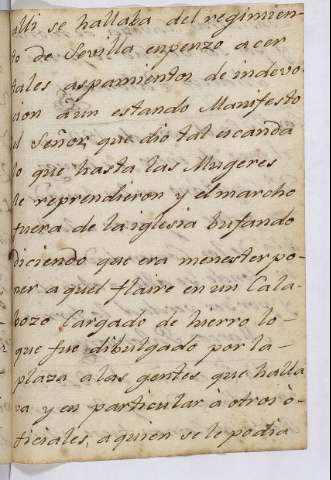 alli se hallaba del regimien-
to de Sevilla enpenzo a cer
tales aspamientos de indevo-
cion aun estando Manifesto
el Señor, que dio tal escanda
lo que hasta las Mugeres
le reprendieron y el marcho
fuera de la iglesia bufando
diciendo que era menester po-
ner a quel flaire en un Cala-
bozo Cargado de hierro lo-
que fue dibulgado por la-
plaza a las gentes que halla
va y en particular à otros ò-
ficiales, a quien se le podia